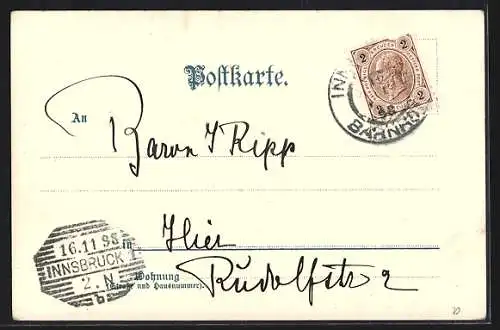 Postkarte.
2 2
2 2
INN
98
BAHNH
An
Baron J Ripp
16.11 98
INNSBRUCK
2. N
b
in Hier
Wohnung
(Straße und Hausnummer). Rudolfstr 2